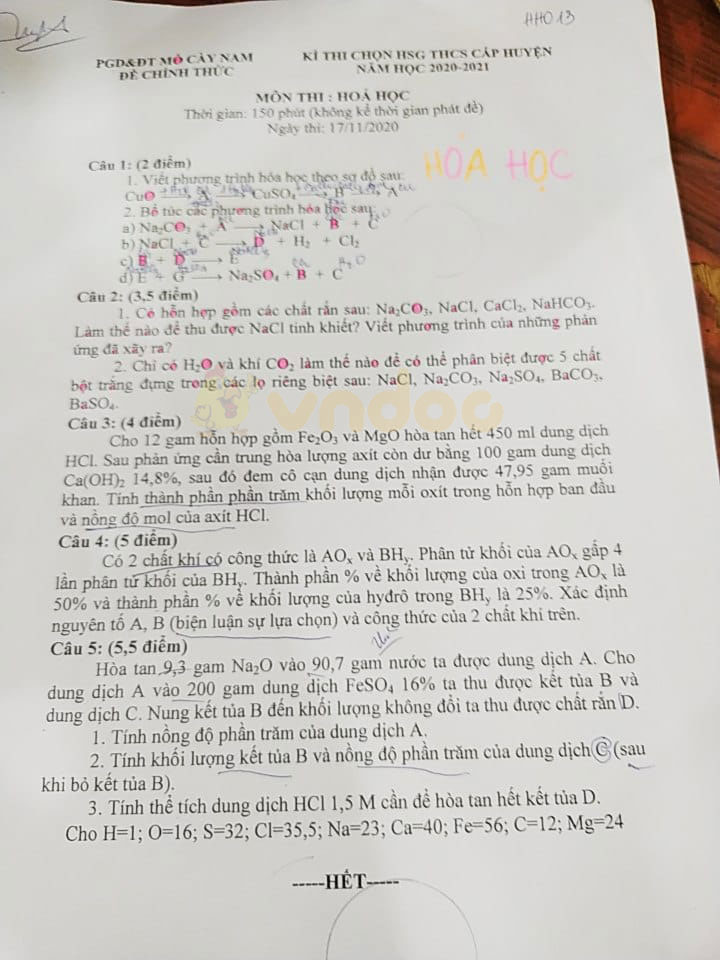 HHO13
PGD&ĐT MỎ CÀY NAM
ĐỀ CHÍNH THỨC
KÌ THI CHỌN HSG THCS CẤP HUYỆN
NĂM HỌC 2020-2021
MÔN THI : HOÁ HỌC
Thời gian: 150 phút (không kể thời gian phát đề)
Ngày thi: 17/11/2020
HÓA HỌC
Câu 1: (2 điểm)
1. Viết phương trình hóa học theo sơ đồ sau:
CuO → A → CuSO₄ → H → A
2. Bổ túc các phương trình hóa học sau:
a) Na₂CO₃ + A → NaCl + B + C
b) NaCl + C → D + H₂ + Cl₂
c) B + D → E
d) E + G → Na₂SO₄ + B + C
Câu 2: (3,5 điểm)
1. Có hỗn hợp gồm các chất rắn sau: Na₂CO₃, NaCl, CaCl₂, NaHCO₃.
Làm thế nào để thu được NaCl tinh khiết? Viết phương trình của những phản
ứng đã xãy ra?
2. Chỉ có H₂O và khí CO₂ làm thế nào để có thể phân biệt được 5 chất
bột trắng đựng trong các lọ riêng biệt sau: NaCl, Na₂CO₃, Na₂SO₄, BaCO₃,
BaSO₄.
vndoc
Câu 3: (4 điểm)
Cho 12 gam hỗn hợp gồm Fe₂O₃ và MgO hòa tan hết 450 ml dung dịch
HCl. Sau phản ứng cần trung hòa lượng axít còn dư bằng 100 gam dung dịch
Ca(OH)₂ 14,8%, sau đó đem cô cạn dung dịch nhận được 47,95 gam muối
khan. Tính thành phần phần trăm khối lượng mỗi oxít trong hỗn hợp ban đầu
và nồng độ mol của axít HCl.
Câu 4: (5 điểm)
Có 2 chất khí có công thức là AOₓ và BHᵧ. Phân tử khối của AOₓ gấp 4
lần phân tử khối của BHᵧ. Thành phần % về khối lượng của oxi trong AOₓ là
50% và thành phần % về khối lượng của hyđrô trong BHᵧ là 25%. Xác định
nguyên tố A, B (biện luận sự lựa chọn) và công thức của 2 chất khí trên.
Câu 5: (5,5 điểm)
Hòa tan 9,3 gam Na₂O vào 90,7 gam nước ta được dung dịch A. Cho
dung dịch A vào 200 gam dung dịch FeSO₄ 16% ta thu được kết tủa B và
dung dịch C. Nung kết tủa B đến khối lượng không đổi ta thu được chất rắn D.
1. Tính nồng độ phần trăm của dung dịch A.
2. Tính khối lượng kết tủa B và nồng độ phần trăm của dung dịch C (sau
khi bỏ kết tủa B).
3. Tính thể tích dung dịch HCl 1,5 M cần để hòa tan hết kết tủa D.
Cho H=1; O=16; S=32; Cl=35,5; Na=23; Ca=40; Fe=56; C=12; Mg=24
-----HẾT-----